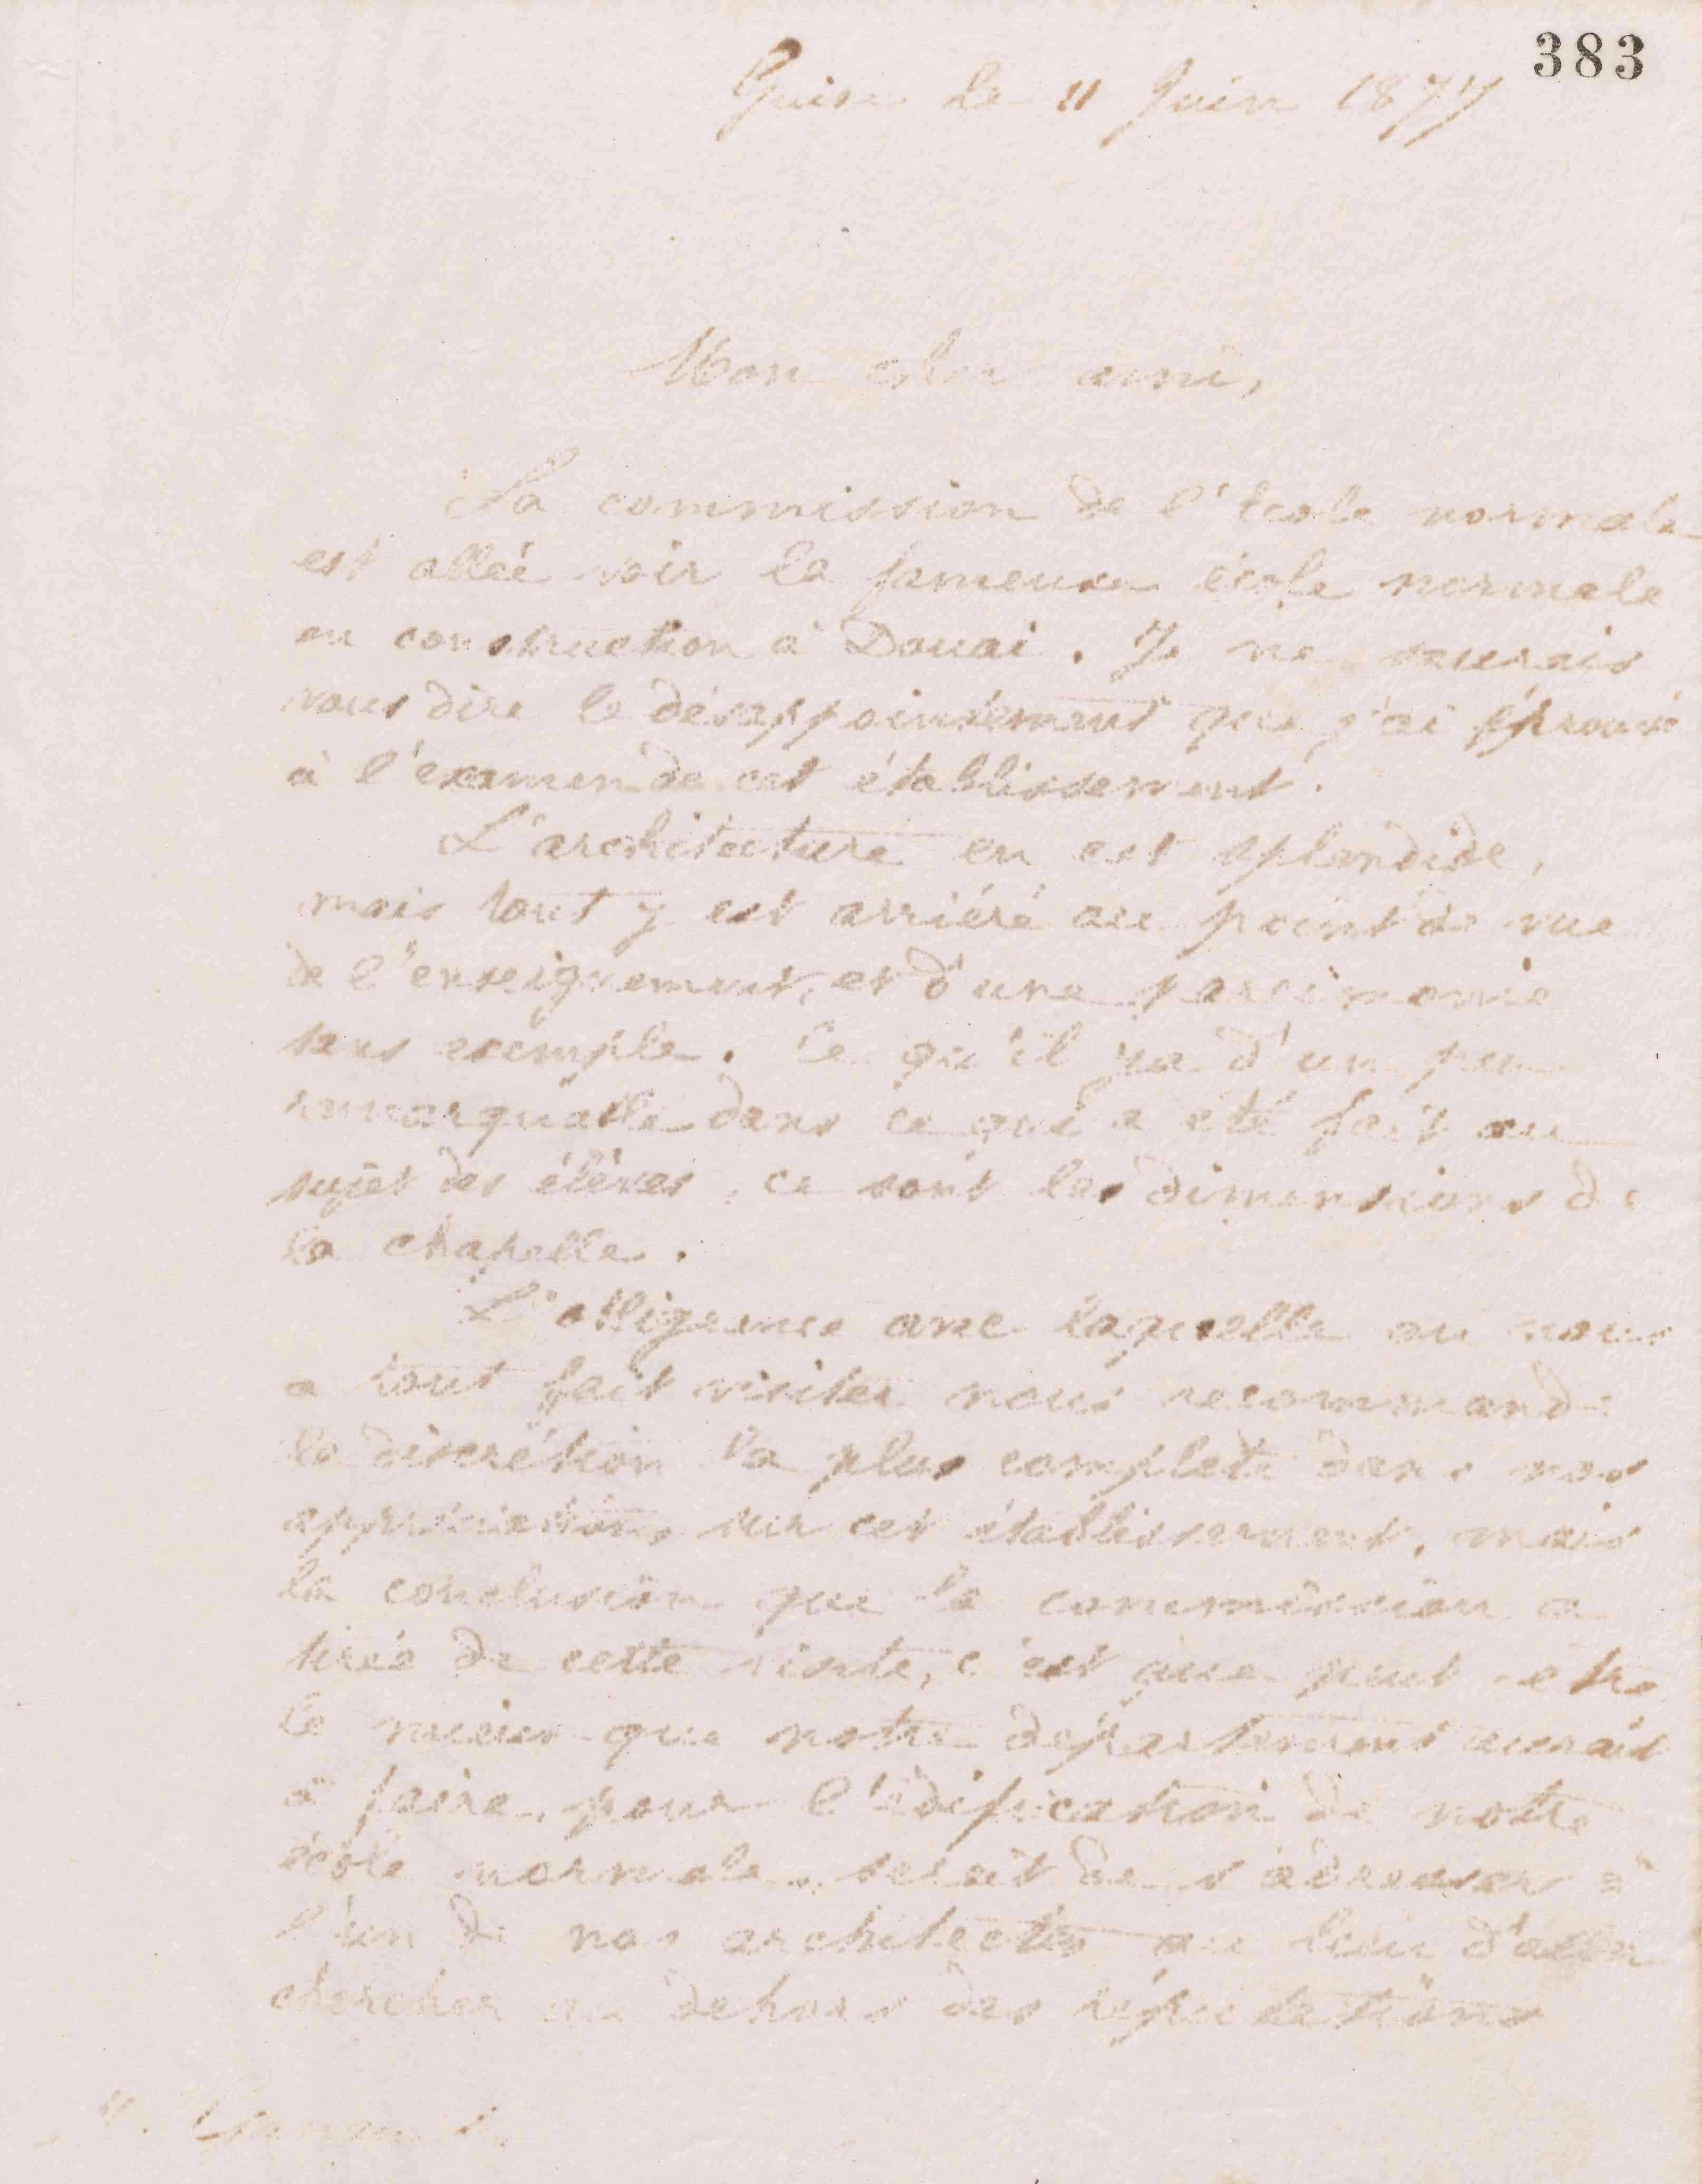 383
Guise le 11 Juin 1877
Mon cher ami,
La commission de l'école normale
est allée voir la fameuse école normale
en construction à Douai. Je ne saurais
vous dire le désappointement que j'ai éprouvé
à l'examen de cet établissement.
L'architecture en est splendide,
mais tout y est arriéré au point de vue
de l'enseignement, et d'une parcimonie
sans exemple. Ce qu'il y a d'un peu
remarquable dans ce qui a été fait au
sujet des élèves, ce sont les dimensions de
la chapelle.
L'obligeance avec laquelle on nous
a tout fait visiter nous recommande
la discrétion la plus complète dans nos
appréciations sur cet établissement, mais
la conclusion que la commission a
tirée de cette visite, c'est que peut-être
le mieux que notre département aurait
à faire, pour l'édification de notre
école normale, serait de s'adresser à
l'un de nos architectes au lieu d'aller
chercher au dehors des réputations